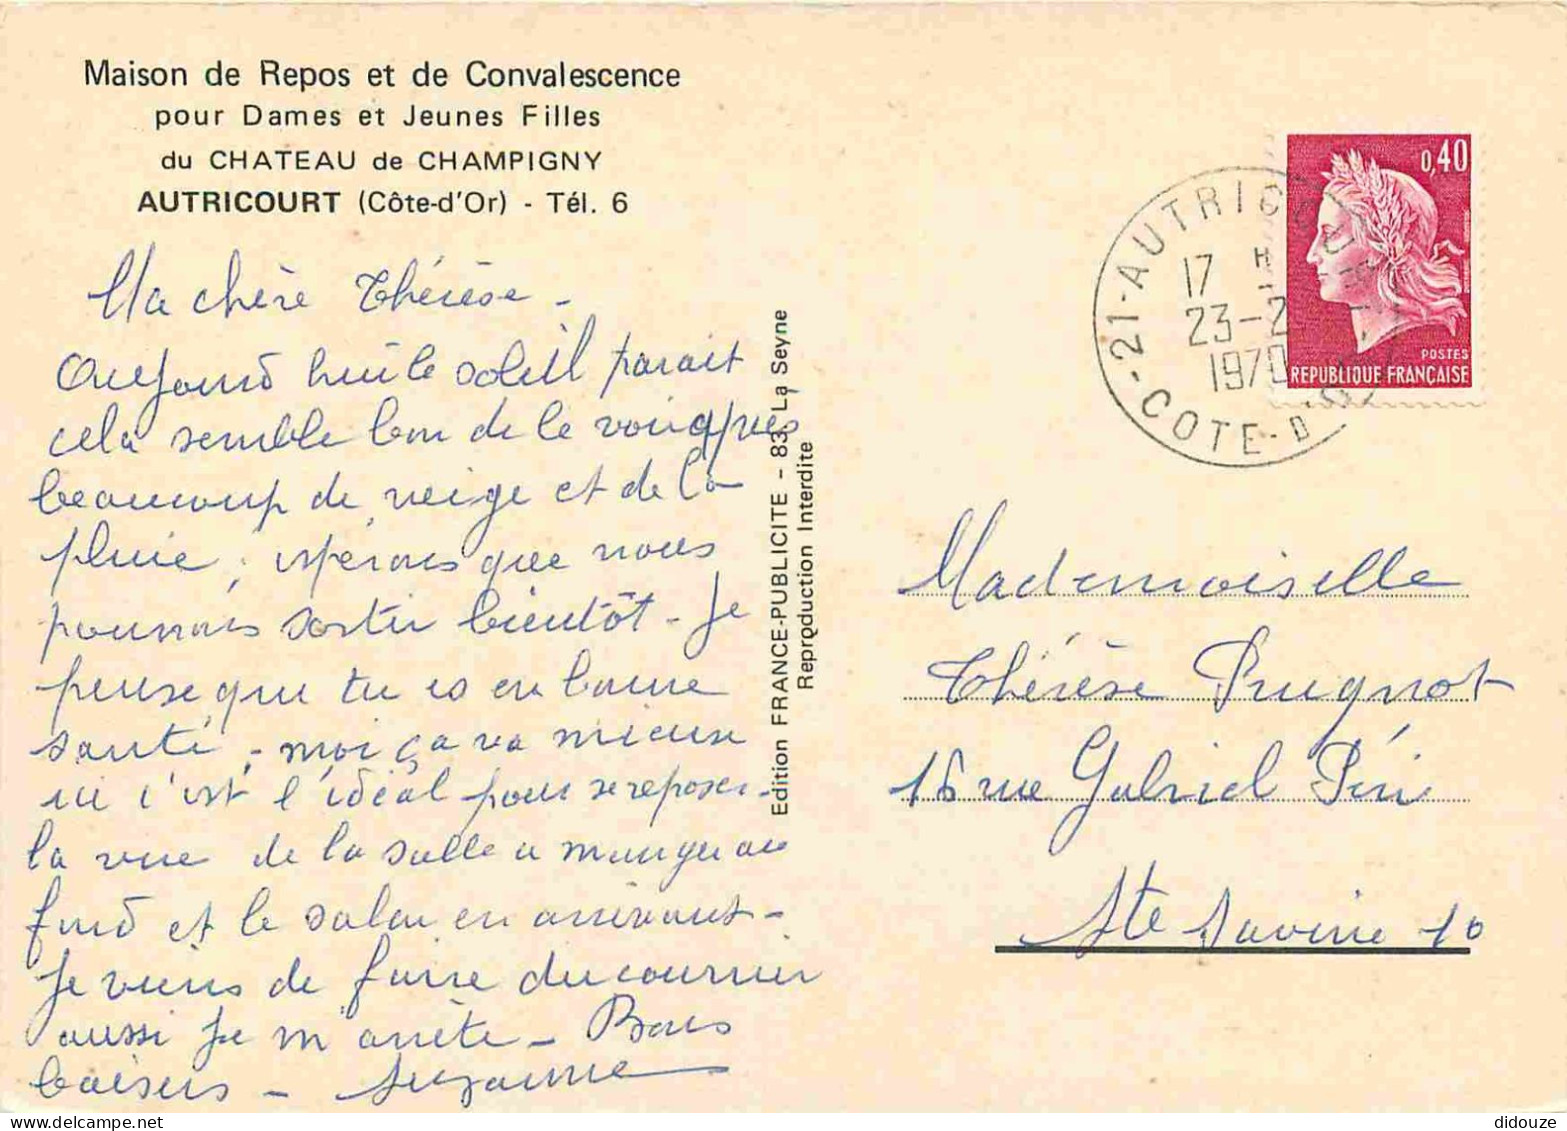 Maison de Repos et de Convalescence
pour Dames et Jeunes Filles
du CHATEAU de CHAMPIGNY
AUTRICOURT (Côte-d'Or) - Tél. 6
Ma chère Thérèse -
Aujourd'hui le soleil parait
cela semble bon de le voir après
beaucoup de neige et de la
pluie, espérons que nous
pourrons sortir bientôt - Je
pense que tu es en bonne
santé, - moi ça va mieux
ici c'est l'idéal pour se reposer -
la vue de la salle a manger au
fond et le salon en arrivant -
Je viens de faire du courrier
aussi je m'arrête - Bons
baisers - Suzanne
Edition FRANCE-PUBLICITE - 83 La Seyne
Reproduction Interdite
21 - AUTRICOURT
17 H
23-2
1970
COTE-D'OR
0,40
POSTES
REPUBLIQUE FRANÇAISE
Mademoiselle
Thérèse Prugnot
16 rue Gabriel Péri
Ste Savine 10
didouze